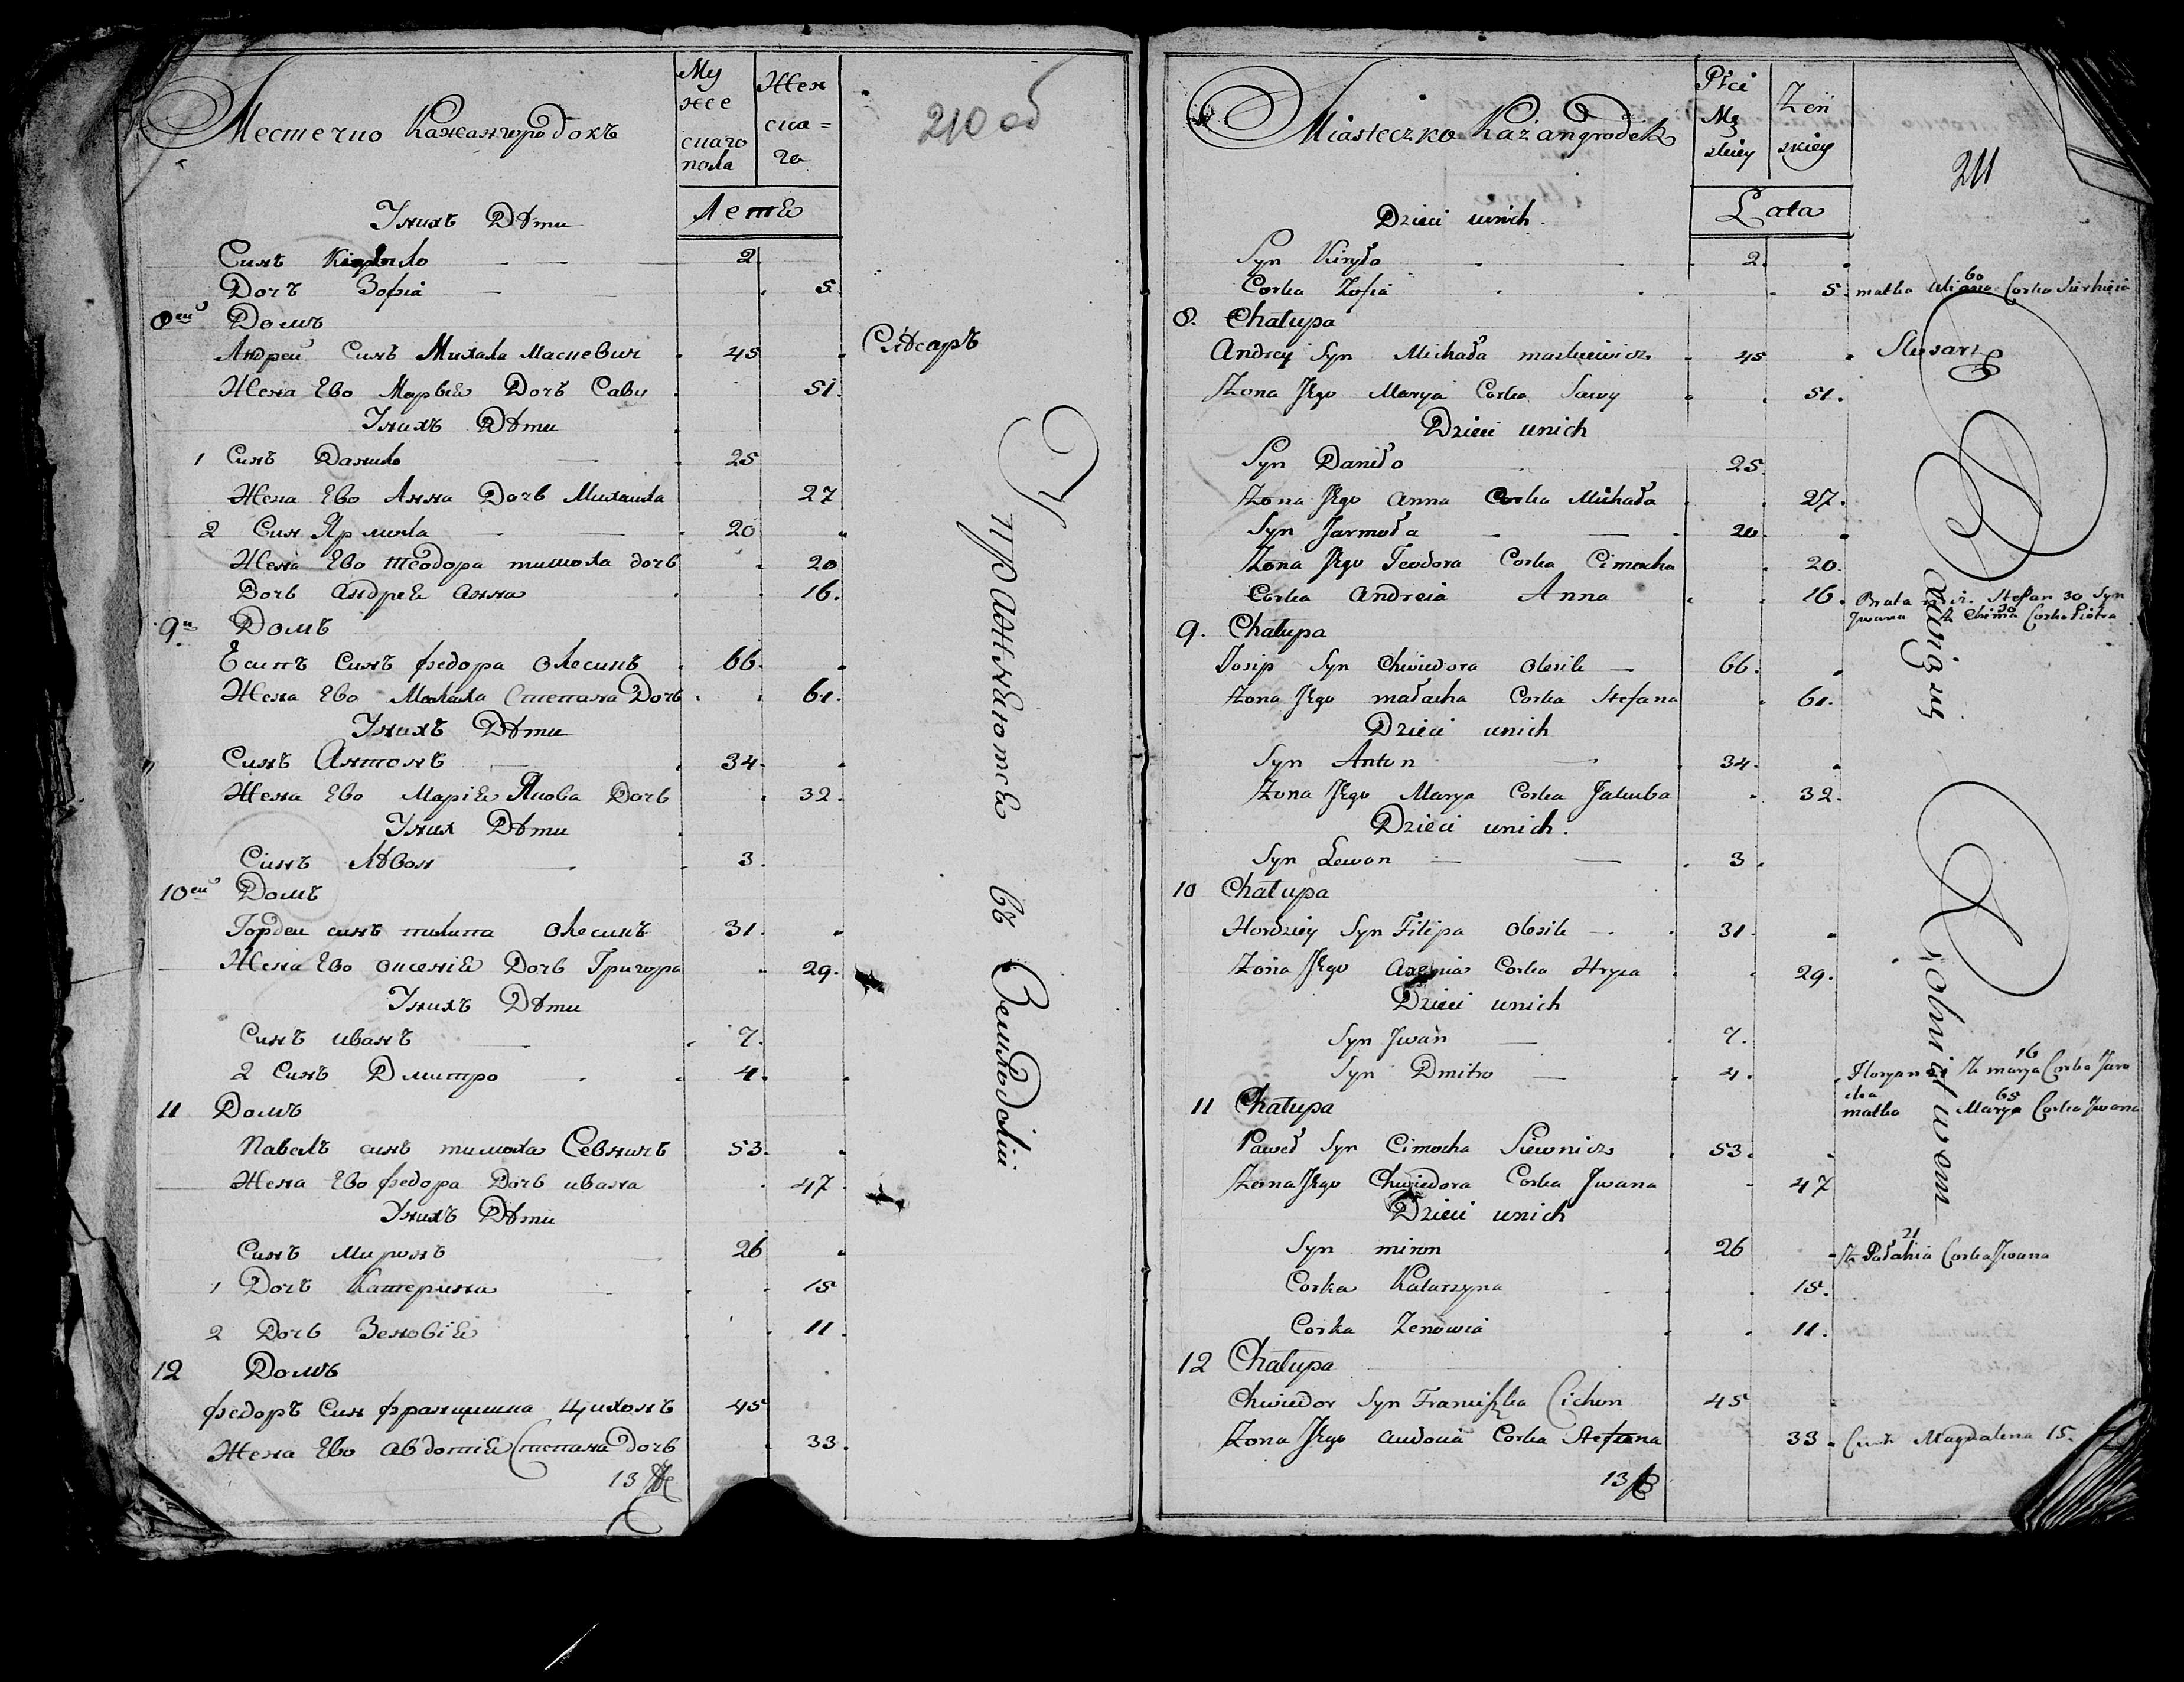 Местечко Кажангродокъ
Му
жес
скаго
пола
Жен
ска=
га
Лета
210 об
Унихъ Дѣти
Синъ Кирыло 2
Дочъ Зофіа 5
8ей Домъ
Андрей Синъ Михала Маскевич 45 Слѣсаръ
Жена Ево Марья Дочъ Савы 51
Унихъ Дѣти
1 Синъ Данило 25
Жена Ево Анна Дочь Михаила 27
2 Син Ярмола 20
Жена Ево теодора тимоха дочь 20
Дочь андрея анна 16
9й Домъ
Есипъ Синъ федора Олесикъ 66
Жена Ево Малаха Степана Дочь 61
Унихъ Дѣти
Синъ Антонъ 34
Жена Ево Марія Якова Дочь 32
Уних Дѣти
Синъ Лѣвон 3
10ей Домъ
Гордей синъ пилипа Олесикъ 31
Жена Ево оксенія Дочь Григора 29
Унихъ Дѣти
Синъ иванъ 7
2 Синъ Дмитро 4
11 Домъ
Павелъ синъ тимоха Севничъ 53
Жена Ево федора Дочь ивана 47
Унихъ Дѣти
Синъ Миронъ 26
1 Дочъ Катерина 15
2 Дочь Зеновія 11
12 Домъ
федоръ Син францишка Цихонъ 45
Жена Ево авдотія Степана дочь 33
13
Упражняютса въ Земледеліи
Miasteczko Każangrodek
Płci
Mę
skiey
Żeń
skiey
Lata
211
Dzieci unich
Syn Kiryło 2
Corka Zofia 5 matka 60 Corka
8. Chałupa
Andrey Syn Michała maskiewicz 45 Slusarz
Żona Jego Marya Corka Sawy 51
Dzieci unich
Syn Daniło 25
Żona Jego anna Corka Michała 27
Syn Jarmoła 20
Żona Jego Teodora Corka Cimocha 20
Corka Andreia Anna 16 Brata Stefan 30 Syn
Jwana Corka Piotra
9. Chałupa
Josip Syn Chwiedora Olesik 66
Żona Jego małacha Corka Stefana 61
Dzieci unich
Syn Anton 34
Żona Jego Marya Corka Jakuba 32
Dzieci unich
Syn Lewon 3
10 Chałupa
Hordziey Syn Filipa Olesik 31
Żona Jego Axenia Corka Hryca 29
Dzieci unich
Syn Jwan 7
Syn Dmitro 4 Floryan Ż marya 16 Corka
11 Chałupa matka Marya 65 Corka Jwana
Paweł Syn Cimocha Siewnicz 53
Żona Jego Chwiedora Corka Jwana 47
Dzieci unich
Syn miron 26 Ż Pałahia 21 Corka Jwana
Corka Katarzyna 15
Corka Zenowia 11
12 Chałupa
Chwiedor Syn Franciszka Cichon 45
Żona Jego audocia Corka Stefana 33 Magdalena 15
13
Bawią się Rolnictwem